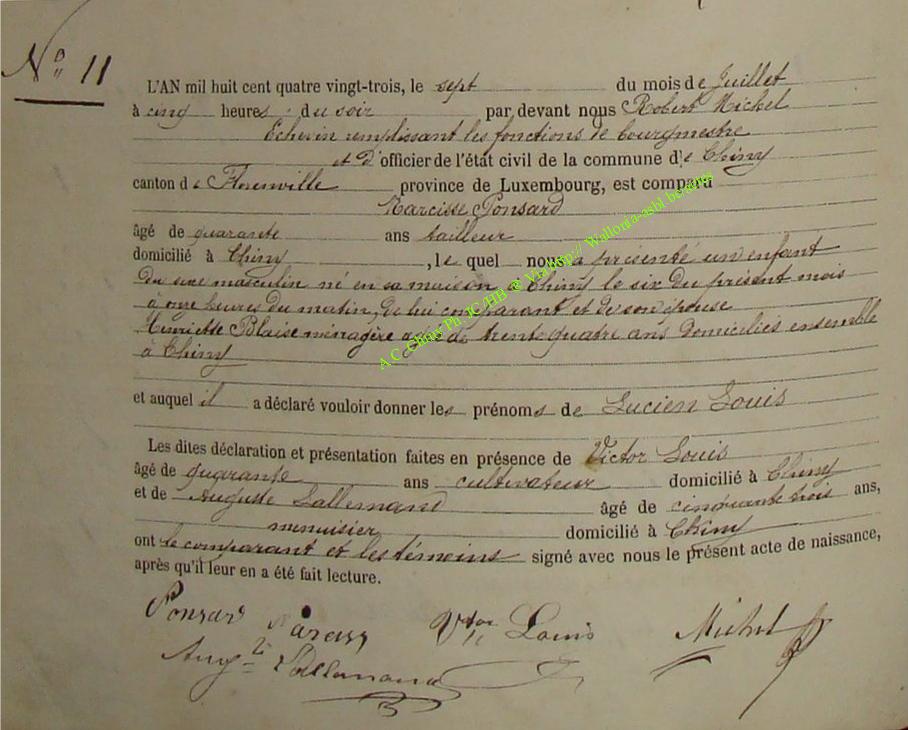 N° 11
L'AN mil huit cent quatre vingt-trois, le sept du mois de Juillet
à cinq heures du soir par devant nous Robert Michel
Echevin remplissant les fonctions de bourgmestre
et d'officier de l'état civil de la commune de Chiny
canton de Florenville province de Luxembourg, est comparu
Narcisse Ponsard
âgé de quarante ans tailleur
domicilié à Chiny, le quel nous a présenté un enfant
du sexe masculin né en sa maison à Chiny le six du présent mois
à onze heures du matin, de lui comparant et de son épouse
Henriette Blaise ménagère agée de trente quatre ans domiciliés ensemble
à Chiny
et auquel il a déclaré vouloir donner les prénoms de Lucien Louis
Les dites déclaration et présentation faites en présence de Victor Louis
âgé de quarante ans cultivateur domicilié à Chiny
et de Auguste Lallemand âgé de cinquante trois ans,
menuisier domicilié à Chiny
ont le comparant et les témoins signé avec nous le présent acte de naissance,
après qu'il leur en a été fait lecture.
Ponsard Narciss Vtor Louis Michel
Aug te Lallemand
A.C. Chiny Ph JC/HB @ Via http:// Wallonia-asbl.be/actes